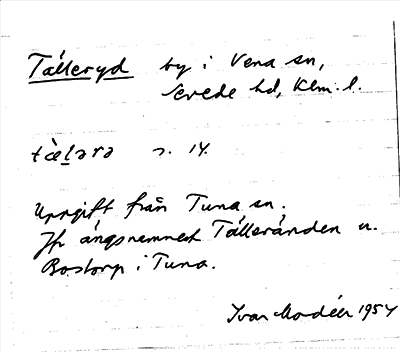 Tälleryd by i Vena sn,
Sevede hd, Klm. l.
tæ̀lərə s. 14.
Uppgift från Tuna sn.
Jfr ängsnamnet Tälleränden u.
Bostorp i Tuna.
Ivar Modéer 1954